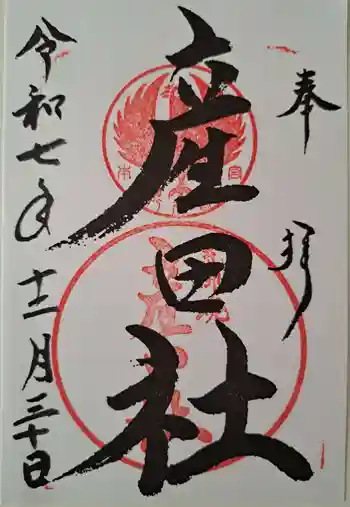 奉拝
産田社
令和七年十二月三十日